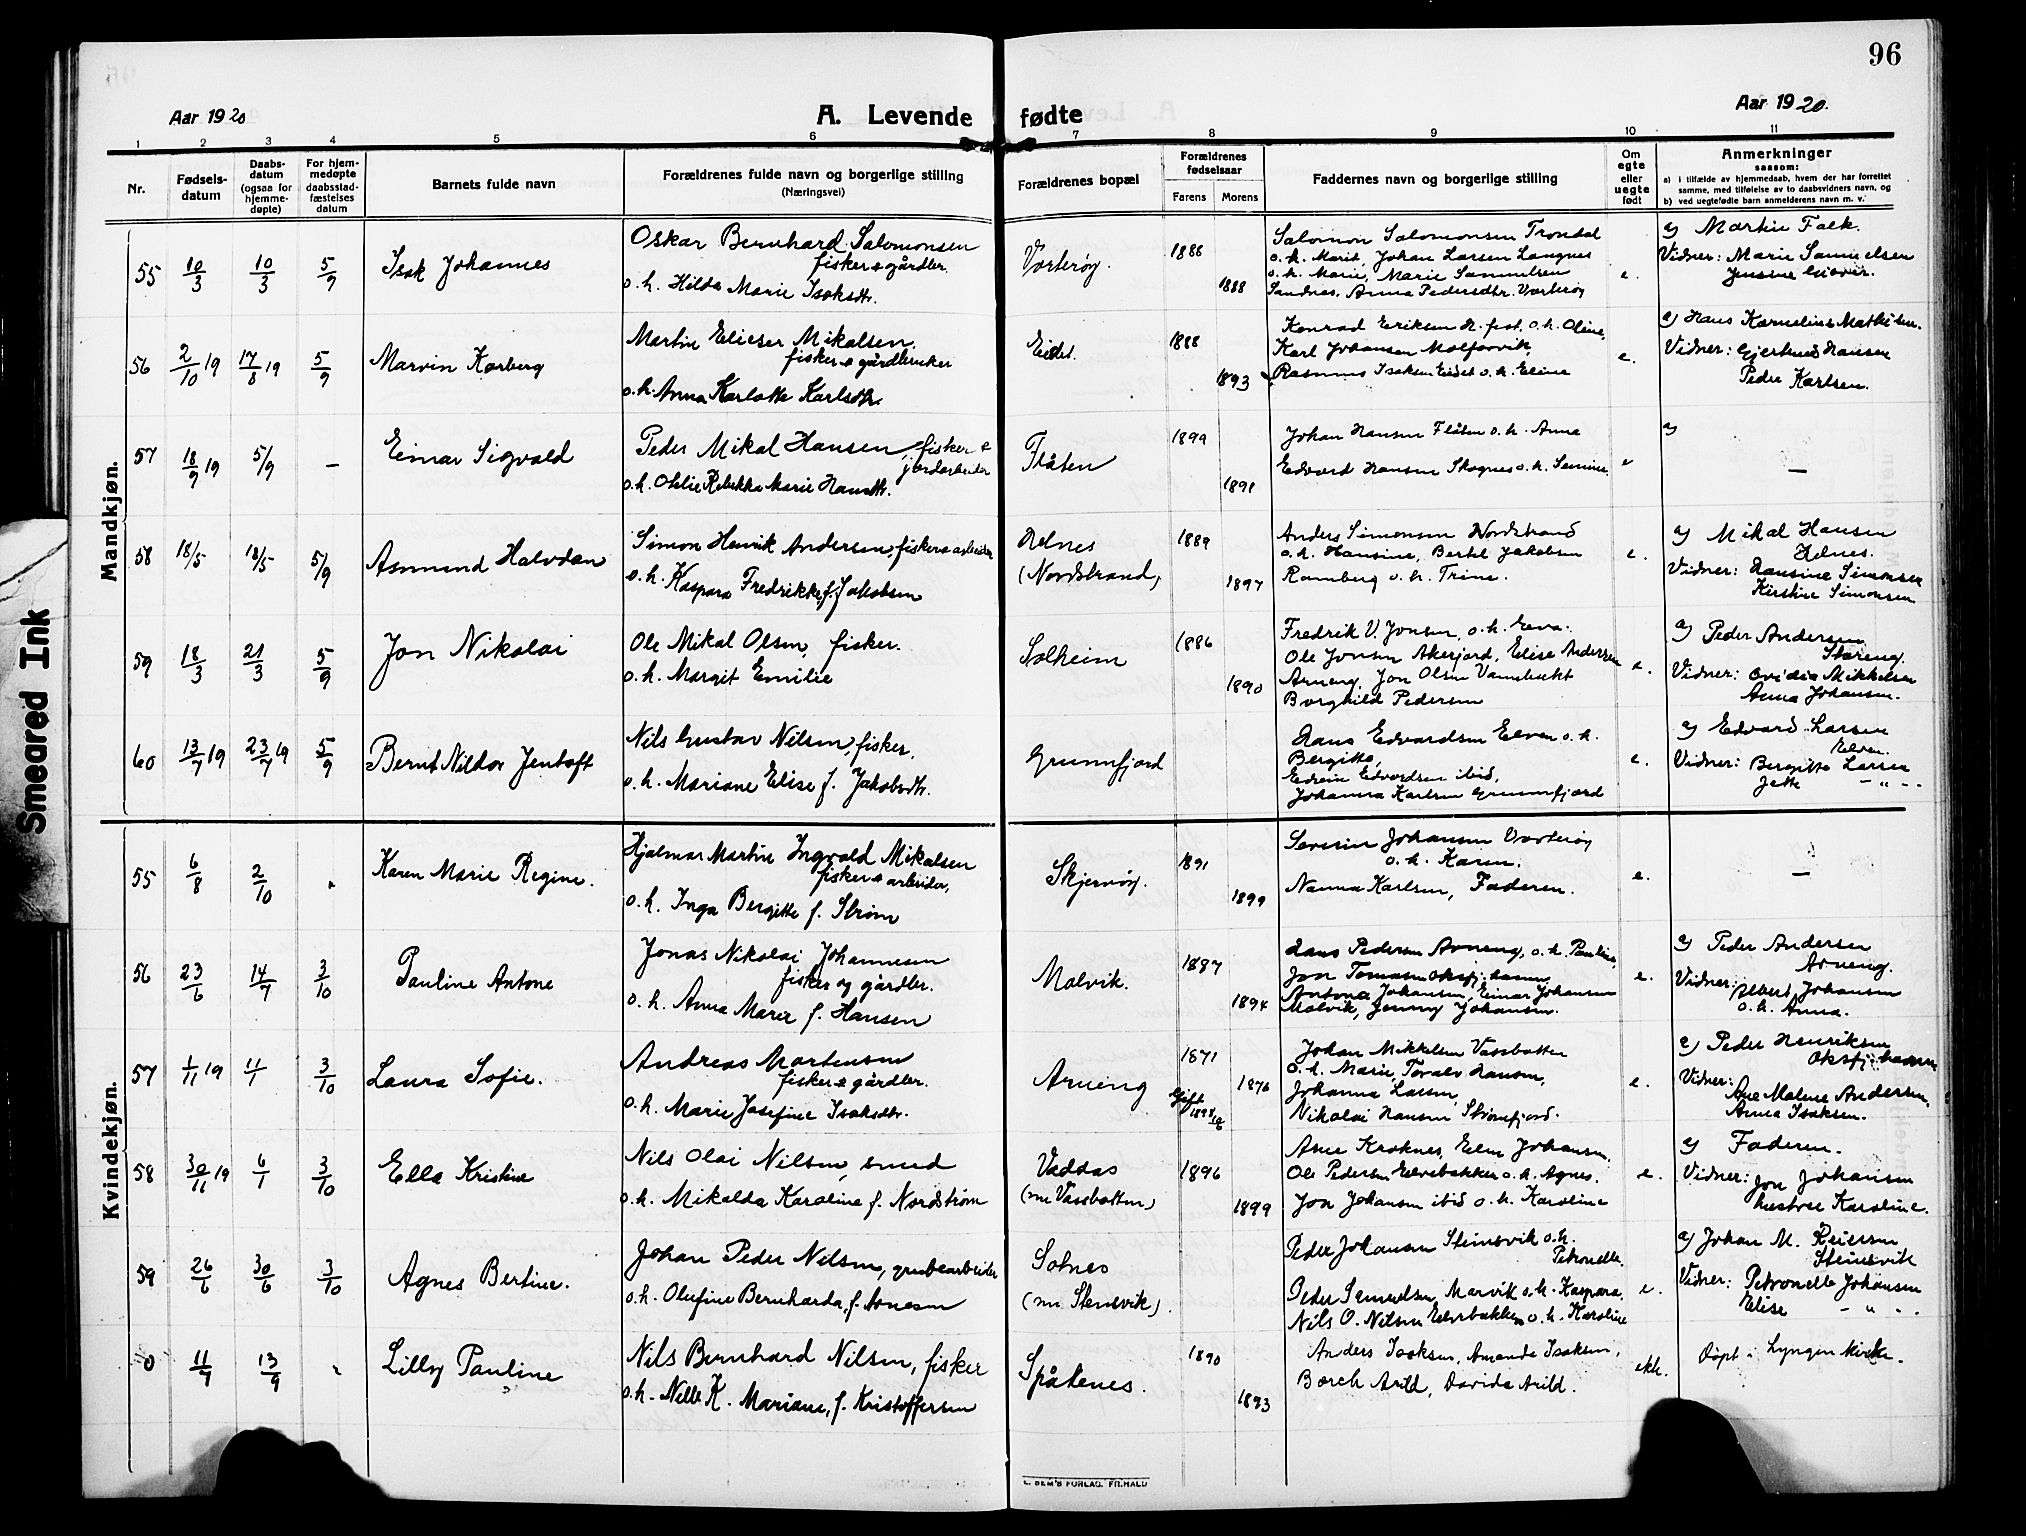 96
Aar 1920
A. Levende fødte
Aar 1920.
1 2 3 4 5 6 7 8 9 10 11
Nr.
Fødsels-
datum
Daabs-
datum
(ogsaa for
hjemme-
døpte)
For hjem-
medøpte
daabsstad-
fæstelses
datum
Barnets fulde navn
Forældrenes fulde navn og borgerlige stilling
(Næringsvei)
Forældrenes bopæl
Forældrenes
fødselsaar
Farens
Morens
Faddernes navn og borgerlige stilling
Om
egte
eller
uegte
født
Anmerkninger
saasom:
a) i tilfælde av hjemmedaab, hvem der har forrettet
samme, med tilføielse av to daabsvidners navn, og
b) ved uegtefødte barn anmelderens navn m. v.
Mandkjøn.
55 10/3 10/3 5/9 Isak Johannes
Oskar Bernhard Salomonsen
fisker & gårdbr.
o. h. Hilda Marie Isaksdtr.
Vorterøy.
1886
1888
Salomon Salomonsen Trondal
o. h. Marit, Johan Larsen Langnes
o. h. Marie, Marie Samuelsen
Sandnes, Anna Pedersdtr. Vorterøy
e.
a) Martin Falk.
Vidner: Marie Samuelsen
56 2/10 19 17/8 19 5/9 Marvin Karberg
Martin Elieser Mikalsen,
fisker & gårdbruker
o. h. Anna Karlotte Karlsdtr.
Eidet.
1888
1893
Konrad Eriksen o. h. Oline,
Karl Johansen
Rasmus Isaksen Eidet o. h. Eline
e.
a) Hans Kornelius Mathisen.
Vidner: Gjertrud Hansen
Peder Karlsen.
57 18/9 19 5/9 — Einar Sigvald
Peder Mikal Hansen, fisker &
jordarbeider
o. h. Otelie Rebekka Marie Hansdtr.
Flåten
1899
1891
Johan Hansen Flåten o. h. Anna
Edvard Hansen Skognes o. h.
e
a)
—
58 18/5 18/5 5/9 Asmund Halvdan
Simon Henrik Andersen, fisker & arbeider
o. h. Kaspara Fredrikke f. Jakobsen
(Nordstrand)
1889
1897
Anders Simonsen Nordstrand
o. h. Hansine, Bertel Jakobsen
Ramberg o. h. Trine.
e.
a) Mikal Hansen
Vidner: Hansine Simonsen
Kirstine Simonsen
59 18/3 21/3 5/9 Jon Nikolai
Ole Mikal Olsen, fisker.
o. h. Margit Emilie
Solheim
1886
1890
Fredrik V. Jonsen, o. h. Eva.
Ole Jonsen Akerjord, Elise Andersen
Arneng, Jon Olsen Vannbukt
Borghild Pedersen
e.
a) Peder Andersen
Storeng.
Vidner: Ovidia Mikkelsen
Anna Johansen.
60 13/7 19 23/7 19 5/9 Bernt Nildor Jentoft
Nils Gustav Nilsen, fisker,
o. h. Mariane Elise f. Jakobsdtr.
Grunnfjord
Hans Edvardsen Elven o. h.
Bergitte,
Edvin Edvardsen ibid,
Johanna Karlsen Grunnfjord
e.
a) Edvard Larsen
Elven.
Vidner: Bergitte Larsen
Jette — " —
Kvindekjøn.
55 6/8 2/10 " Karen Marie Regine.
Hjalmar Martin Ingvald Mikalsen
fisker & arbeider,
o. h. Inga Bergitte f. Strøm
Skjervøy.
1891
1899
Severin Johansen Vorterøy
o. h. Karen.
Nanna Karlsen, Faderen.
e.
—
56 23/6 14/7 3/10 Pauline Antone
Jonas Nikolai Johannesen
fisker og gårdbr.
o. h. Anna Marie f. Hansen
Malvik.
1887
1894
Hans Pedersen Arneng, o. h. Pauline,
Jon Tomasen Oksfj.havn,
Antona Johansen, Einar Johansen
Malvik, Jenny Johansen.
e.
a) Peder Andersen
Arneng.
Vidner: Albert Johansen
o. h. Anna.
57 1/11 19 11/1 3/10 Laura Sofie.
Andreas Mortensen
fisker & gårdbr.
o. h. Marie Josefine Isaksdtr.
Arneng
1871
1876
Gift 1898
Johan Mikkelsen Vassbotten
o. h. Marie, Toralv Hansen,
Johanna Larsen,
Nikolai Hansen Straumfjord.
e.
a) Peder Henriksen
Oksfj.havn
Vidner:
Ane Malene Andersen,
Anna Isaksen.
58 30/11 19 6/1 3/10 Ella Kristine
Nils Olai Nilsen, smed
o. h. Mikalda Karoline f. Nordstrøm
Vaddas
(nu Vassbotten)
1896
1899
Arne Kroknes, Elen Johansen.
Ole Pedersen Elvebakken o. h. Agnes.
Jon Johansen ibid o. h. Karoline
e.
a) Faderen.
Vidner: Jon Johansen
hustru Karoline.
59 26/6 30/6 3/10 Agnes Bertine.
Johan Peder Nilsen, grubearbeider
o. h. Olufine Bernharda, f. Jonesen
Sotnes
(nu Stensvik).
Peder Johansen Steinsvik o. h.
Petronelle.
Peder Samuelsen, Marvik o. h. Kaspara,
Nils O. Nilsen Elvebakken o. h. Karoline
e.
a) Johan M. Reiersen
Steinsvik
Vidner: Petronelle Johansen
Elise — " —
0 11/7 13/9 " Lilly Pauline
Nils Bernhard Nilsen, fisker
o. h. Nelle K. Mariane, f. Kristoffersen
Spåkenes.
1890
1893
Anders Isaksen, Amanda Isaksen,
Borch Arild, Davida Arild.
ekte.
Døpt i Lyngen kirke.
E. SEM'S FORLAG. FR.HALD
Smeared Ink